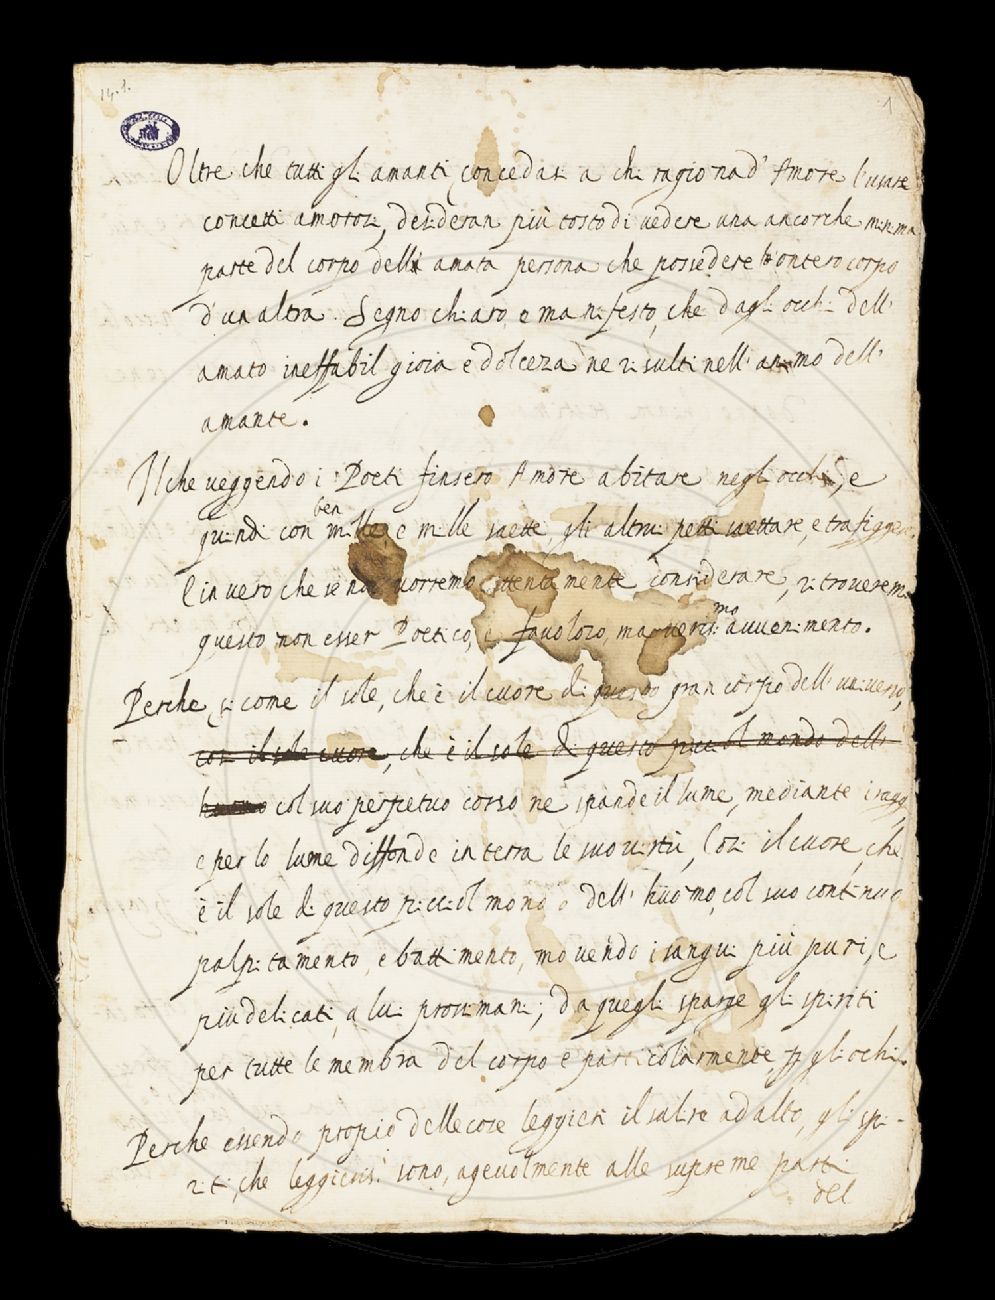 14.1.
1
Oltre che tutti gli amanti concedasi a chi ragiona d' Amore l'usare
concetti amorosi, desideran più tosto di vedere una ancorche minima
parte del corpo dell amata persona che possedere lo intero corpo
d'un altra. Segno chiaro, e manifesto, che dagli occhi dell'
amato ineffabil gioia e dolceza ne risulti nell' animo dell'
amante.
Il che veggendo i Poeti finsero Amore abitare negl' occhi, e
ben
quindi con mille e mille saette, gli altrui petti saettare, e trafiggere.
E in vero che se noi vorremo attentamente considerare, ritroverem
mo
questo non esser Poetico, e favoloso, ma veriss: avvenimento.
Perche, si come il sole, che è il cuore di questo gran corpo dell' universo,
cosi il sole cuore, che è il sole di questo picciol mondo dell
huomo col suo perpetuo corso ne spande il lume, mediante i raggi,
e per lo lume diffonde in terra le suo virtù, Cosi il cuore, che
è il sole di questo picciol mondo dell' huomo, col suo continuo
palpitamento, e battimento, movendo i sangui più puri, e
più delicati, a lui prossimani; da quegli sparge gli spiriti
per tutte le membra del corpo e particolarmente p gli ochi.
Perche essendo propio delle cose leggieri il salire ad alto, gli spi-
riti, che leggieriss:i sono, agevolmente alle supreme parti
del